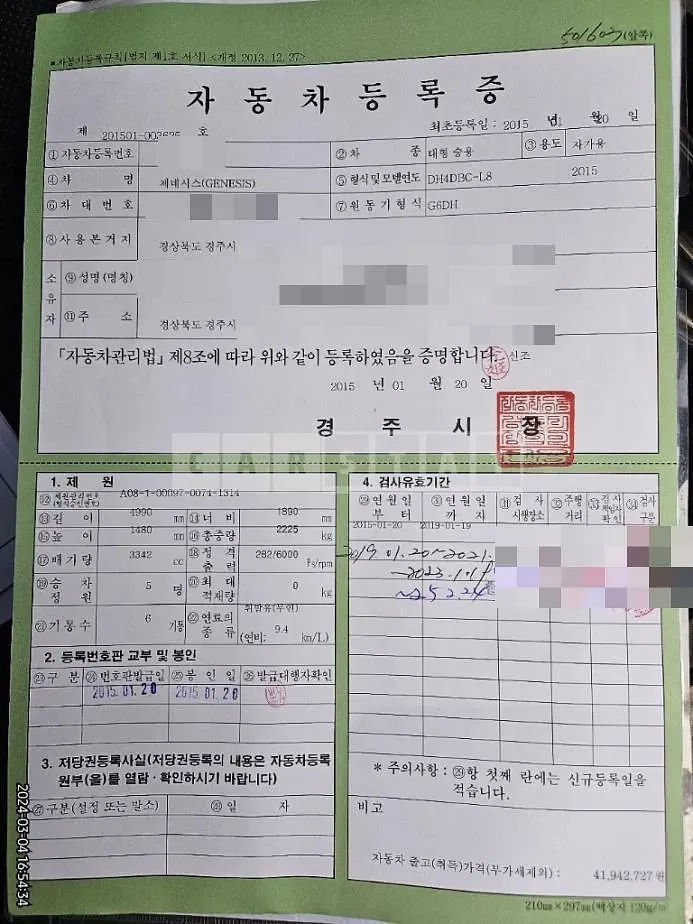 501603 (앞쪽)
■ 자동차등록규칙[별지 제1호 서식] <개정 2013. 12. 27>
자 동 차 등 록 증
제 201501-00 호 최초등록일 : 2015 년 월 20 일
① 자동차등록번호 ② 차 종 대형 승용 ③ 용도 자가용
④ 차 명 제네시스(GENESIS) ⑤ 형식 및 모델연도 DH4DBC-L8 2015
⑥ 차 대 번 호 ⑦ 원 동 기 형 식 G6DH
⑧ 사 용 본 거 지 경상북도 경주시
소유자 ⑨ 성명 (명칭)
⑪ 주 소 경상북도 경주시
「자동차관리법」 제8조에 따라 위와 같이 등록하였음을 증명합니다. 신조
2015 년 01 월 20 일
경 주 시 장
CARSTAR
1. 제 원
⑫ 제원관리번호 (형식승인번호) A08-1-00097-0071-1314
⑬ 길 이 4990 mm ⑭ 너 비 1890 mm
⑮ 높 이 1480 mm ⑯ 총중량 2225 kg
⑰ 배 기 량 3342 cc ⑱ 정 격 출 력 282/6000 Ps/rpm
⑲ 승 차 정 원 5 명 ⑳ 최 대 적재량 0 kg
㉑ 기 통 수 6 기통 ㉒ 연료의 종 류 휘발유(무연) (연비: 9.4 km/L)
2. 등록번호판 교부 및 봉인
㉓ 구 분 ㉔ 번호판발급일 ㉕ 봉 인 일 ㉖ 발급대행자확인
2015. 01. 20 2015. 01. 20
3. 저당권등록사실(저당권등록의 내용은 자동차등록
원부(을)를 열람 · 확인하시기 바랍니다)
㉗ 구분(설정 또는 말소) ㉘ 일 자
4. 검사유효기간
㉙ 연 월 일 부 터 ㉚ 연 월 일 까 지 ㉛ 검 사 시행장소 ㉜ 주행 거리 ㉝ 검 사 책임자 확 인 ㉞ 검사 구분
2015-01-20 2019-01-19
2019 01.20~2021.
* 주의사항 : ㉙항 첫째 란에는 신규등록일을
적습니다.
비고
자동차 출고(취득)가격(부가세제외) : 41,942,727 원
210㎜×297㎜(백상지 120g/㎡)
2024-03-04 16:54:34